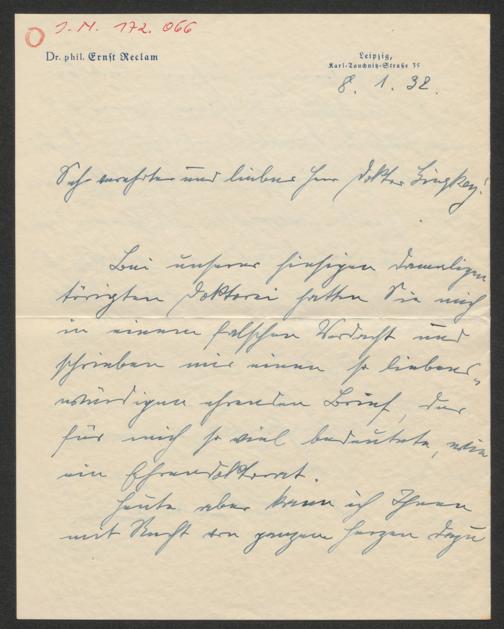 J. N. 172.066
Dr. phil. Ernst Reclam
Leipzig,
Karl-Tauchnitz-Straße 35
8. 1. 32.
Sehr verehrter und lieber Herr Doktor
Bei unserer hiesigen damaligen
törigten Doktorei hatten Sie mich
in einem falschen Verdacht und
schrieben mir einen so liebens-
würdigen ehrenden Brief, der
für mich so viel bedeutete, wie
ein Ehrendoktorat.
Heute aber kann ich Ihnen
mit Recht von ganzem Herzen dazu